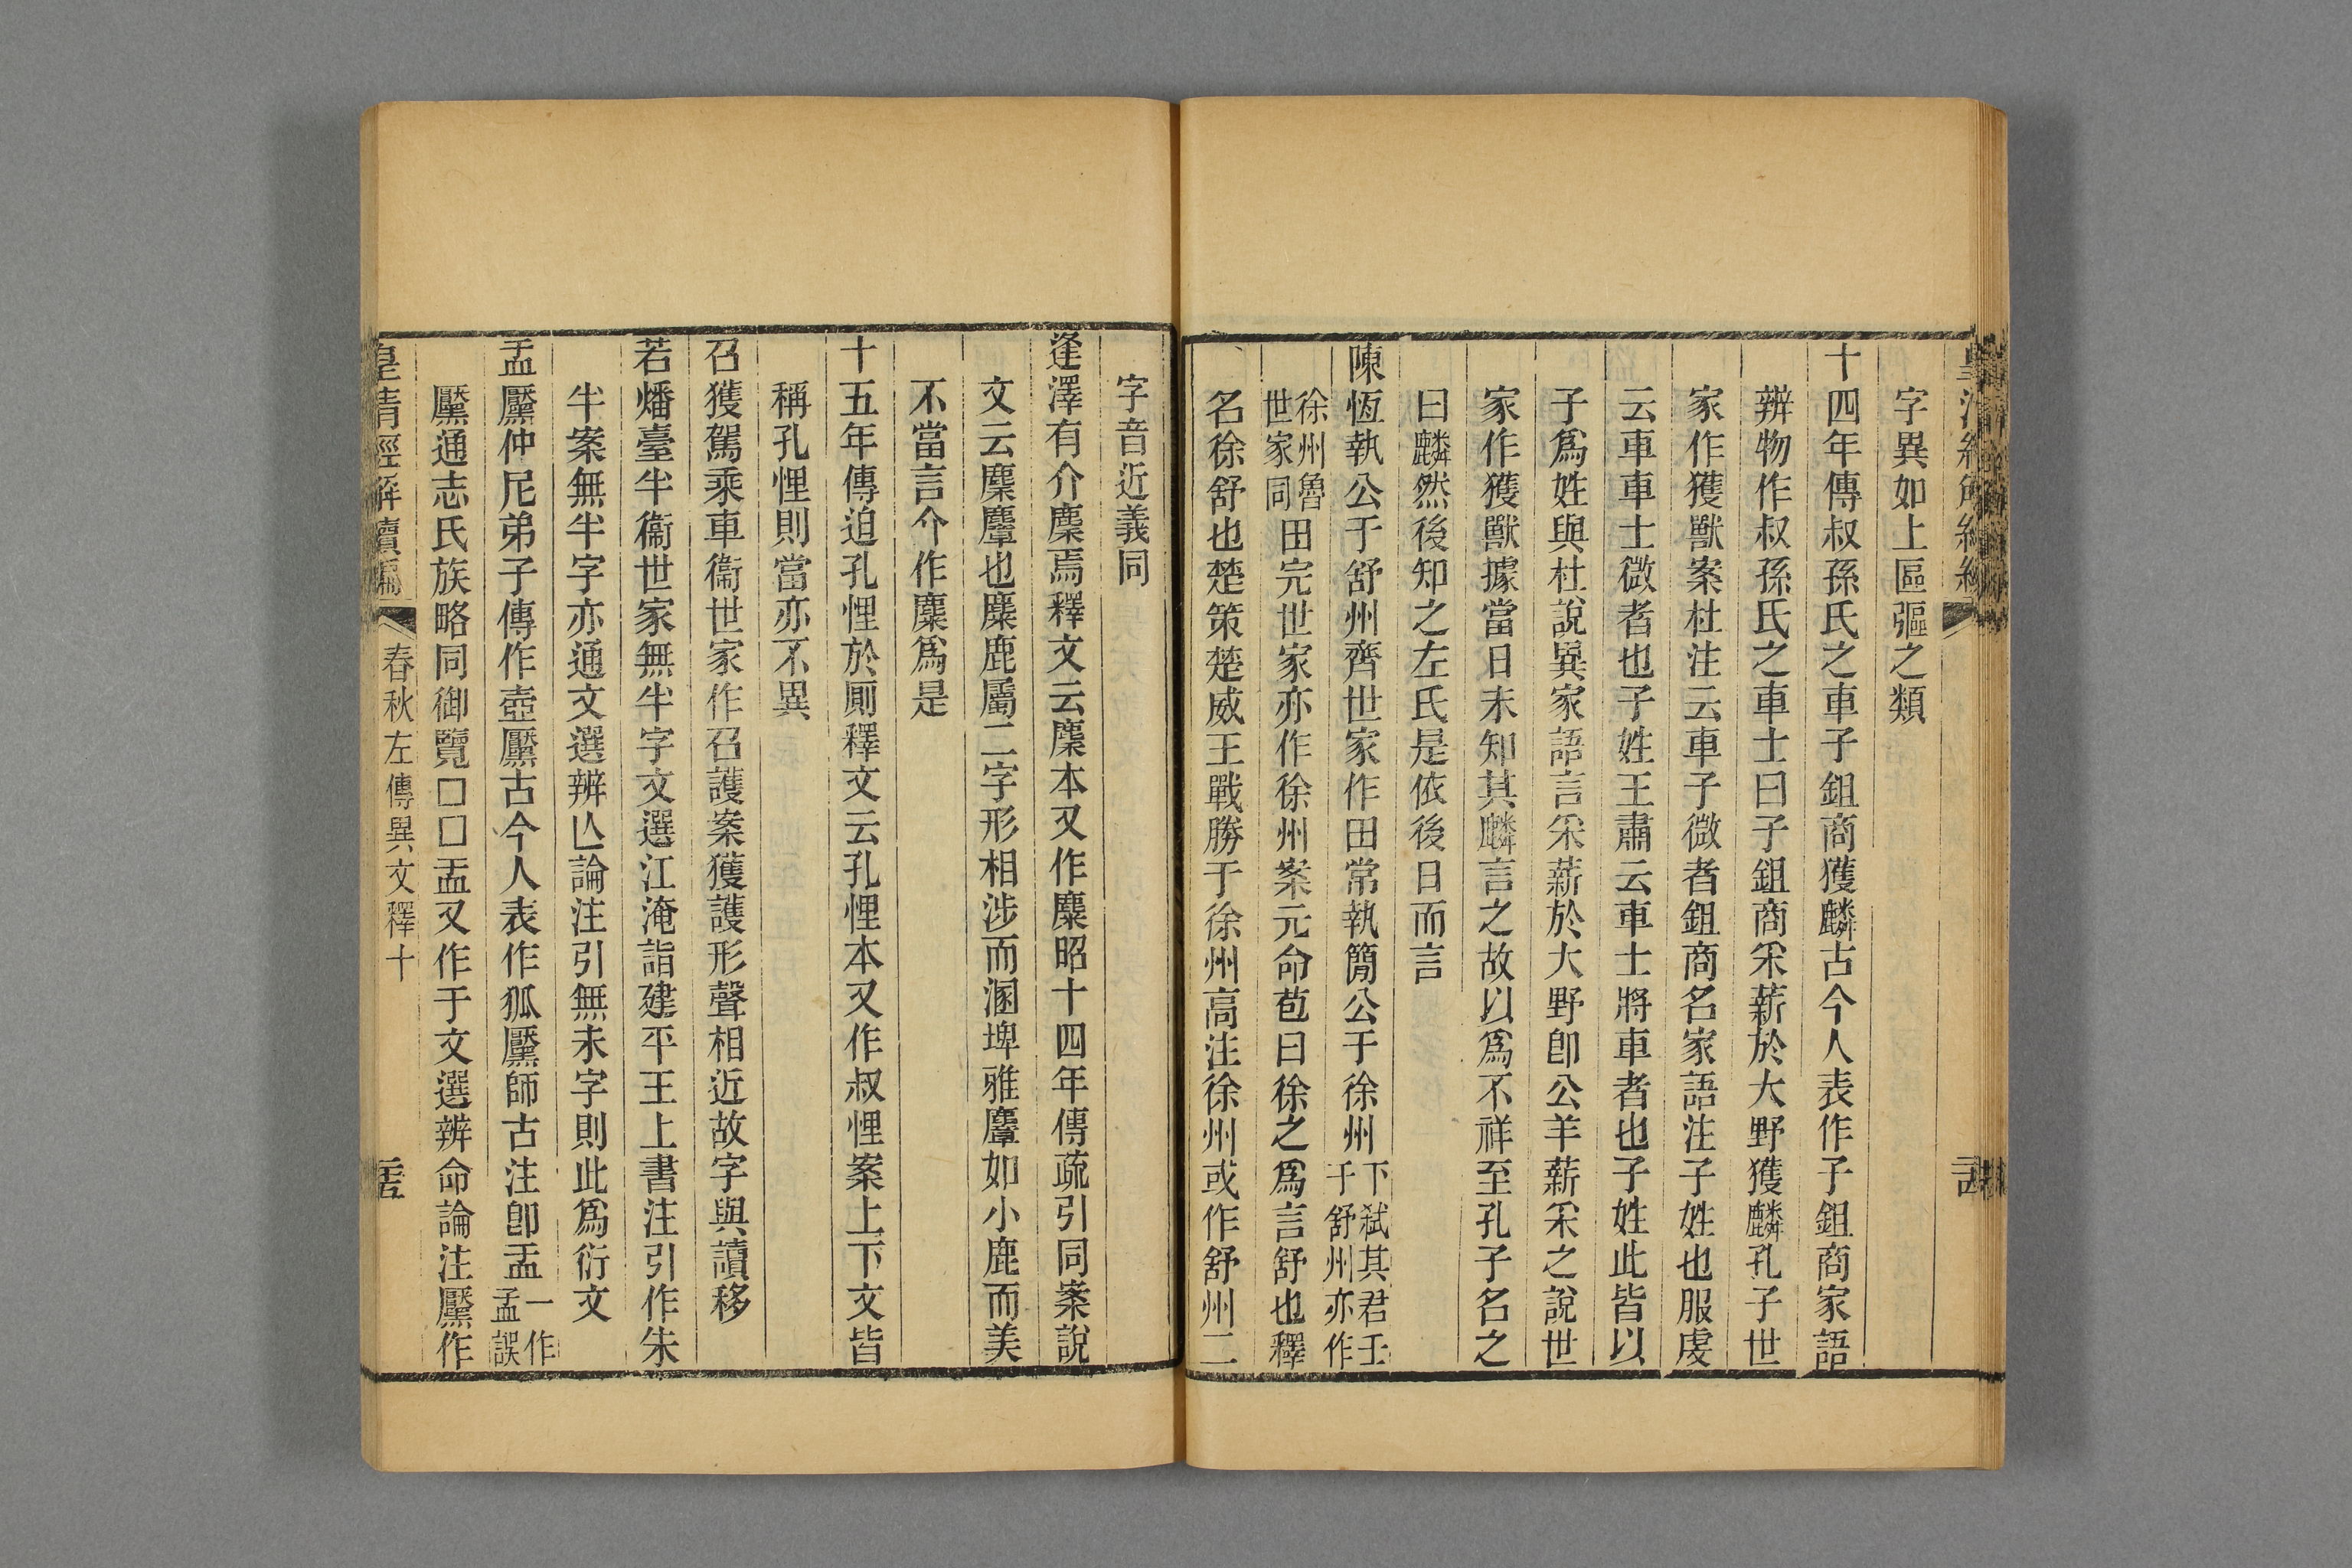 字異如上區彄之類
十四年傳叔孫氏之車子鉏商獲麟古今人表作子鉏商家語
辨物作叔孫氏之車士曰子鉏商采薪於大野獲麟孔子世
家作獲獸案杜注云車子微者鉏商名家語注子姓也服虔
云車車士微者也子姓王肅云車士將車者也子姓此皆以
子爲姓與杜說異家語言采薪於大野卽公羊薪采之說世
家作獲獸據當日未知其麟言之故以爲不祥至孔子名之
曰麟然後知之左氏是依後日而言
陳恆執公于舒州齊世家作田常執簡公于徐州下弑其君壬于舒州亦作
徐州魯世家同田完世家亦作徐州案元命苞曰徐之爲言舒也釋
名徐舒也楚策楚威王戰勝于徐州高注徐州或作舒州二
字音近義同
逢澤有介麇焉釋文云麇本又作麋昭十四年傳疏引同案說
文云麇麞也麋鹿屬二字形相涉而溷埤雅麞如小鹿而美
不當言介作麋爲是
十五年傳迫孔悝於厠釋文云孔悝本又作叔悝案上下文皆
稱孔悝則當亦不異
召獲駕乘車衞世家作召護案獲護形聲相近故字與讀移
若燔臺半衞世家無半字文選江淹詣建平王上書注引作朱
半案無半字亦通文選辨亾論注引無未字則此爲衍文
盂黶仲尼弟子傳作壺黶古今人表作狐黶師古注卽盂一作孟誤
黶通志氏族略同御覽□□盂又作于文選辨命論注黶作
皇清經解續編
春秋左傳異文釋十